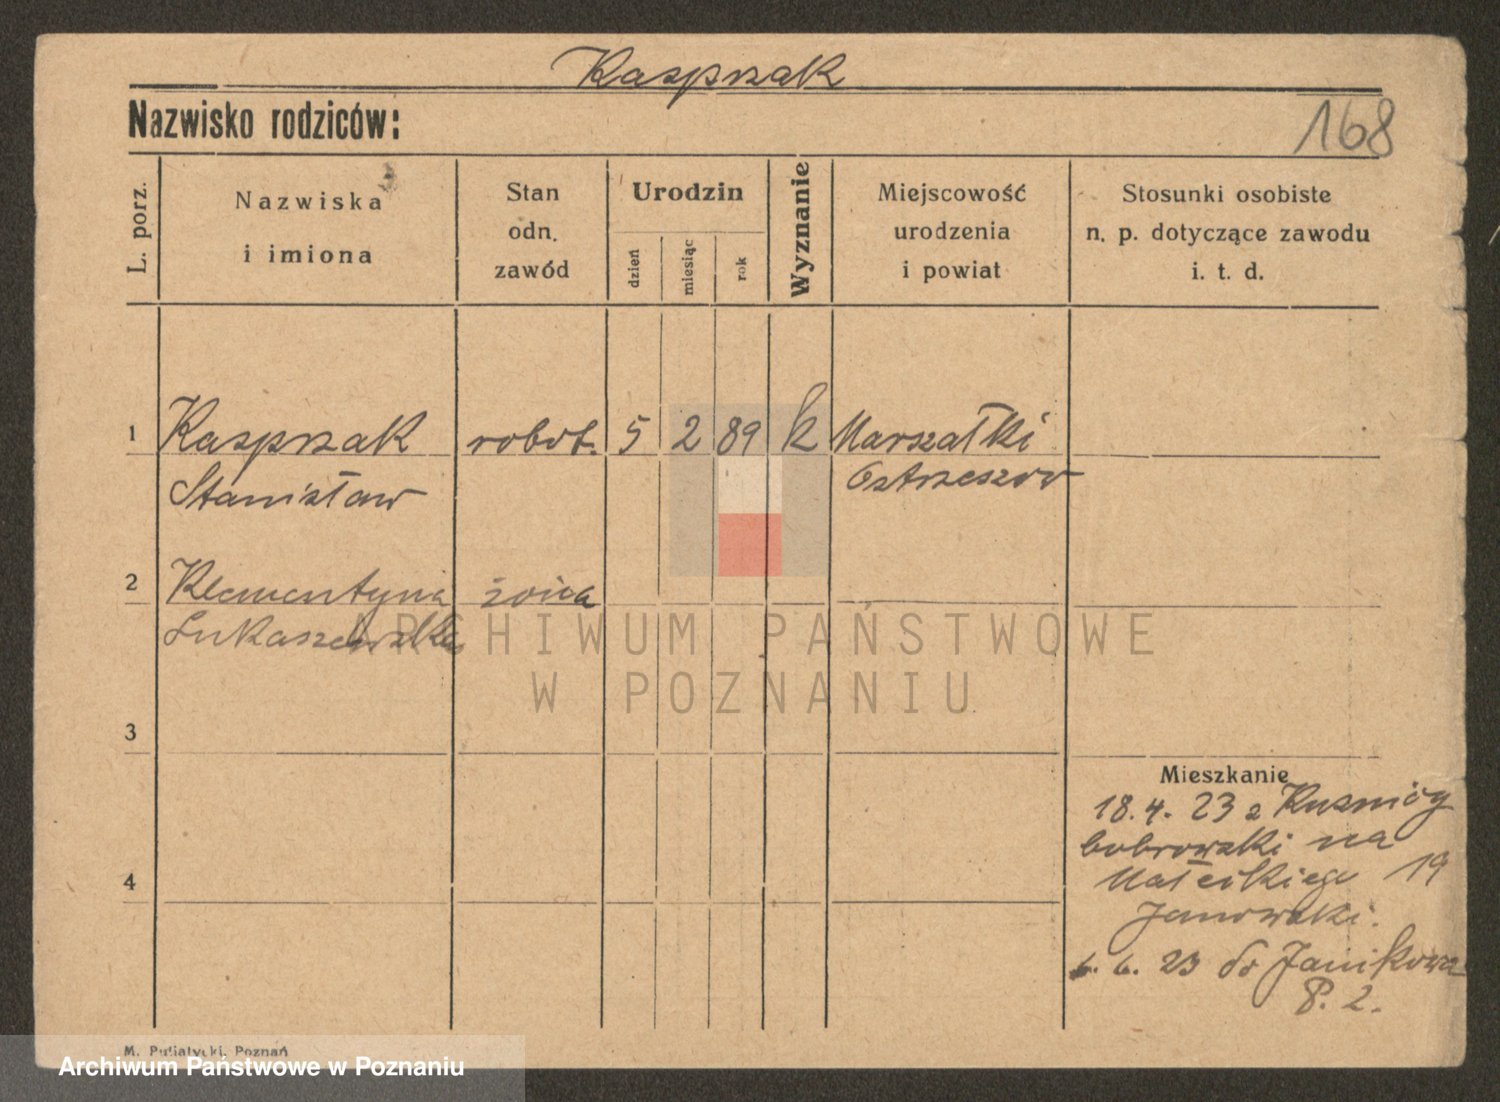 Kasprzak
Nazwisko rodziców:
168
L. porz.
Nazwiska
i imiona
Stan
odn.
zawód
Urodzin
dzień
miesiąc
rok
Wyznanie
Miejscowość
urodzenia
i powiat
Stosunki osobiste
n. p. dotyczące zawodu
i. t. d.
1 Kasprzak robot. 5 2 89 k Marszałki
Stanisław Ostrzeszów
2 Klementyna żona
Łukaszewska
3
Mieszkanie
18.4. 23 z
bobrowski na
4
19
Janowski.
6. 6. 23 do Janikowa
P. 2.
ARCHIWUM PAŃSTWOWE
W POZNANIU
M. Poznań
Archiwum Państwowe w Poznaniu